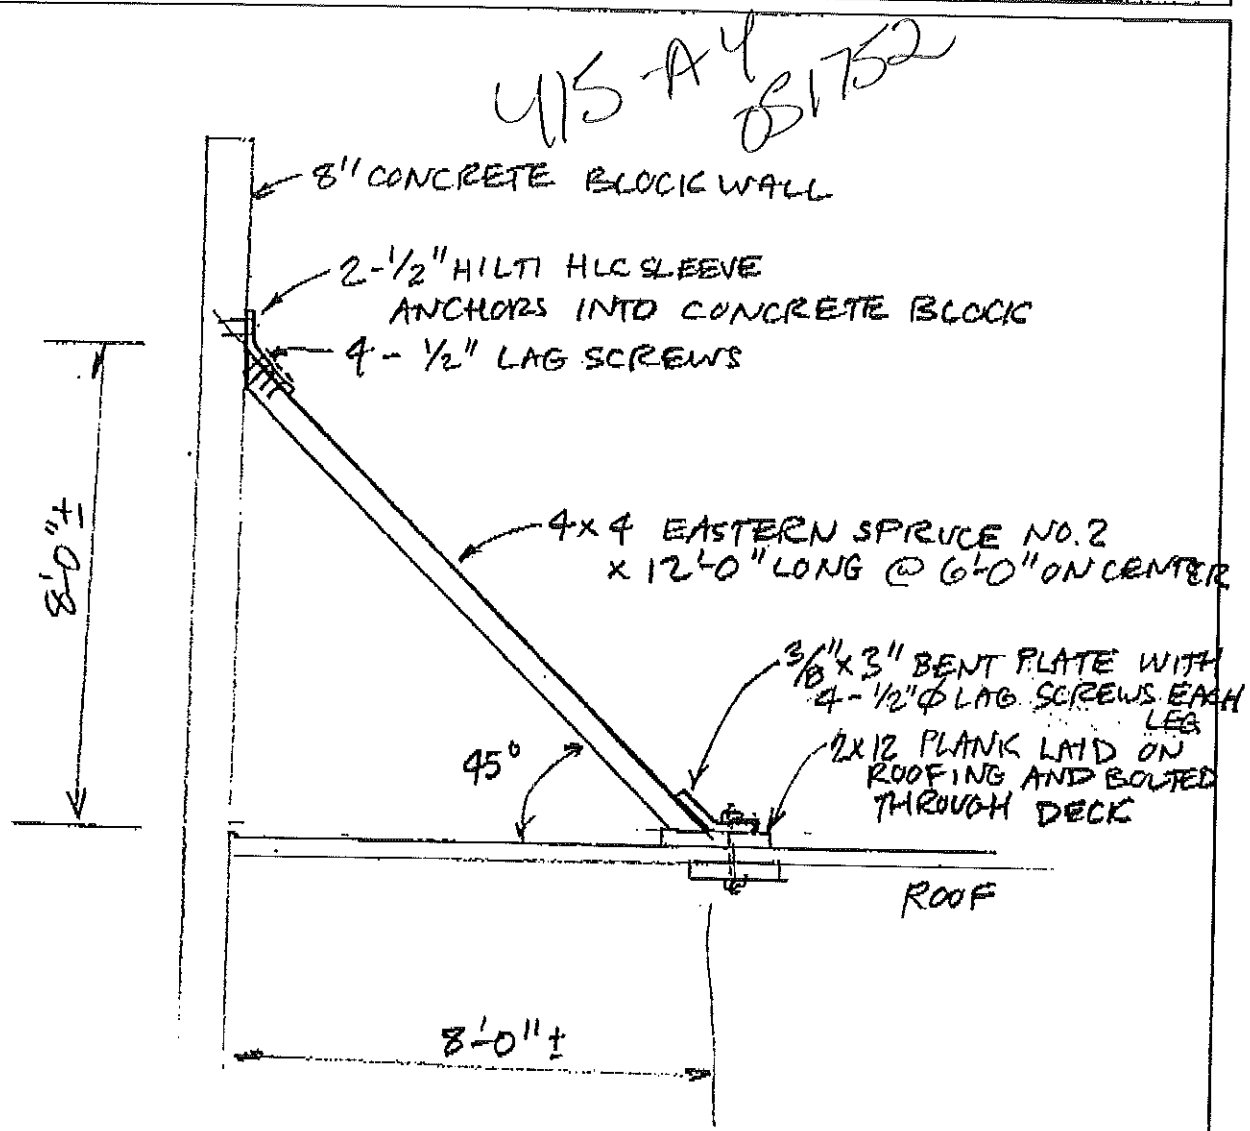 415-A4
051752
8" CONCRETE BLOCK WALL
2-1/2" HILTI HLC SLEEVE
ANCHORS INTO CONCRETE BLOCK
4 - 1/2" LAG SCREWS
8'-0" ±
4x4 EASTERN SPRUCE NO.2
x 12'-0" LONG @ 6'-0" ON CENTER
3/8" x 3" BENT PLATE WITH
4-1/2"Ø LAG SCREWS EACH
LEG
45°
2x12 PLANK LAID ON
ROOFING AND BOLTED
THROUGH DECK
ROOF
8'-0" ±